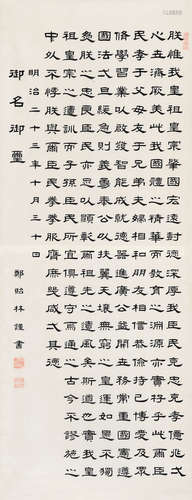 朕惟我皇祖皇宗肇國宏遠樹德深厚我臣民克忠克孝億兆
心世濟厥美此我國體之精華而教育之淵源亦實存乎此爾臣
民孝于父母友于兄弟夫婦相和朋友相信恭儉持己博愛及衆
修學習業以啟發智能成就德器進廣公益開世務常重國憲遵
國法一旦緩急則義勇奉公以扶翼天壤無窮之皇運如是
朕之忠良臣民足以顯彰爾祖先之遺風矣斯道也實我皇
祖皇宗之遺訓而子孫臣民所宜遵守焉通之古今不謬施之
中外不悖朕與爾臣民拳拳服膺庶幾咸一其德
明治二十三年十月三十日
御名御璽
鄭昭林謹書